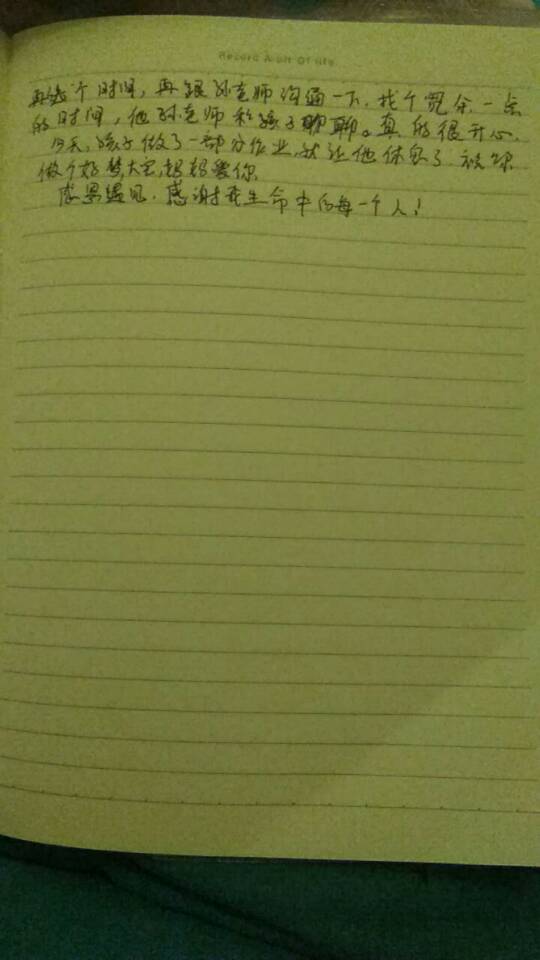 Record A bit Of life
再找个时间，再跟孙老师沟通一下，找个宽余一点
的时间，他孙老师和孩子聊聊。真的很开心。
今天，孩子做了一部分作业，就让他休息了，祝你
做个好梦大宝，妈妈爱你
感恩遇见，感谢我生命中的每一个人！